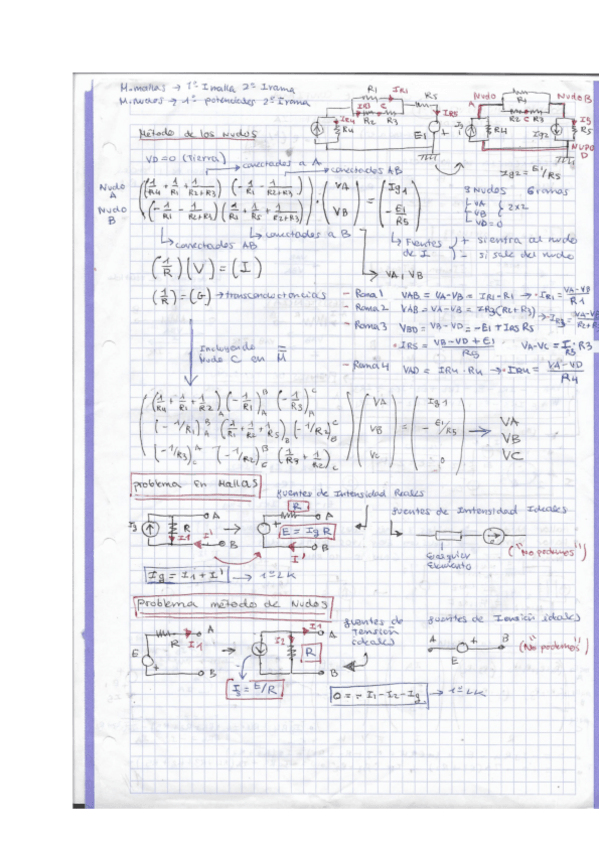 M. mallas → 1º I malla 2º I rama
M. Nudos → 1º potenciales 2º I rama
R1 IR1 R5
IR3 C
IR4 R2 R3 IR5
R4 E1
Nudo A R1 Nudo B
R2 C R3
R4 Ig2 R5
Nudo D
Ig2 = E1/R5
Método de los Nudos
VD=0 (tierra)
conectados a A
conectados AB
Nudo A
Nudo B
(1/R4 + 1/R1 + 1/(R2+R3)) (-1/R1 - 1/(R2+R3))
(-1/R1 - 1/(R2+R3)) (1/R1 + 1/R5 + 1/(R2+R3))
· (VA VB) = (Ig1 -E1/R5)
3 Nudos 6 ramas
VA
VB } 2x2
VD=0
conectados AB
conectados a B
Fuentes de I
+ si entra al nudo
- si sale del nudo
VA, VB
(1/R)(V) = (I)
(1/R) = (G) → transconductancias
- Rama 1 VAB = VA-VB = IR1·R1 → IR1 = (VA-VB)/R1
- Rama 2 VAB = VA-VB = IR3(R2+R3) → IR3 = (VA-VB)/(R2+R3)
- Rama 3 VBD = VB-VD = -E1 + IR5 R5
· IR5 = (VB-VD+E1)/R5 VA-VC = I R3 · R3
- Rama 4 VAD = IR4·R4 → IR4 = (VA-VD)/R4
Incluyendo
Nudo C en M
(1/R4 + 1/R1 + 1/R2)A (-1/R1)A B (-1/R3)A C
(-1/R1)B A (1/R1 + 1/R5)B (-1/R2)B C
(-1/R3)C A (-1/R2)C B (1/R3 + 1/R2)C
(VA VB VC) = (Ig1 -E1/R5 0) → VA
VB
VC
Problema en Mallas
fuentes de Intensidad Reales
Ig R I1 I' A B
R A
E = Ig R
I' B
fuentes de Intensidad Ideales
Cualquier
Elemento
("No podemos")
Ig = I1 + I' → 1ª LK
Problema método de Nudos
fuentes de
Tensión
ideales
fuentes de Tensión ideales
E R I1 A B
I2 I1 A
R
B
A E + B
("No podemos")
Ig = E/R
0 = - I1 - I2 - Ig → 1ª LK